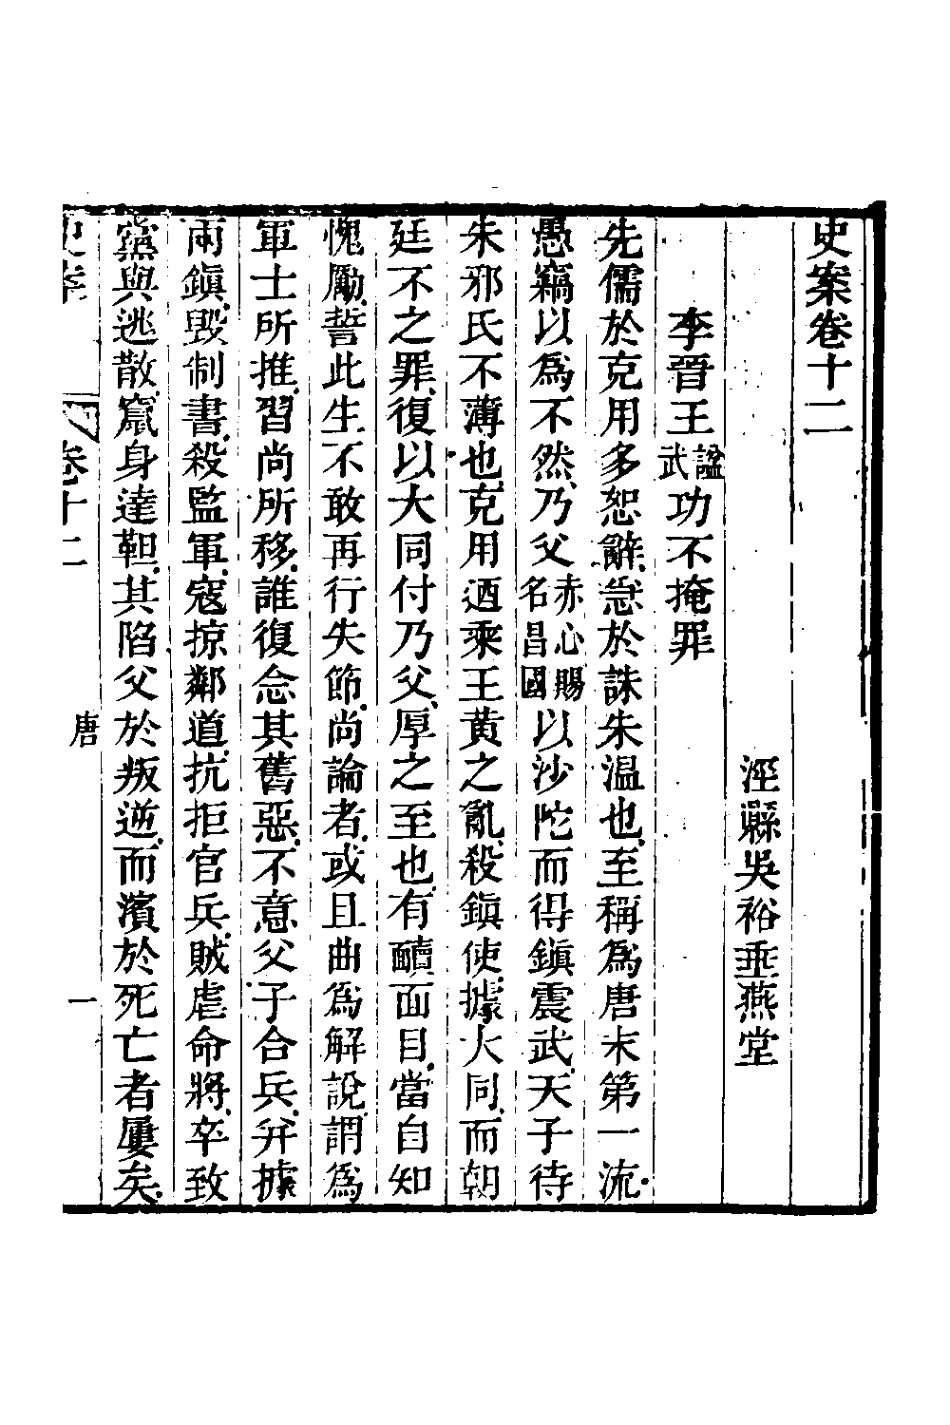 史案卷十二
涇縣吳裕垂燕堂
李晉王諡武功不掩罪
先儒於克用多恕辭怨於誅朱温也至稱爲唐末第一流
愚竊以爲不然乃父赤心賜名昌國以沙陀而得鎭震武天子待
朱邪氏不薄也克用迺乘王黃之亂殺鎭使據大同而朝
廷不之罪復以大同付乃父厚之至也有靦面目當自知
愧勵誓此生不敢再行失節尚論者或且曲爲解說謂爲
軍士所推習尚所移誰復念其舊惡不意父子合兵并據
兩鎭毀制書殺監軍寇掠鄰道抗拒官兵賊虐命將卒致
黨與逃散竄身達靼其陷父於叛逆而濱於死亡者屢矣
史案 卷十二 唐 一